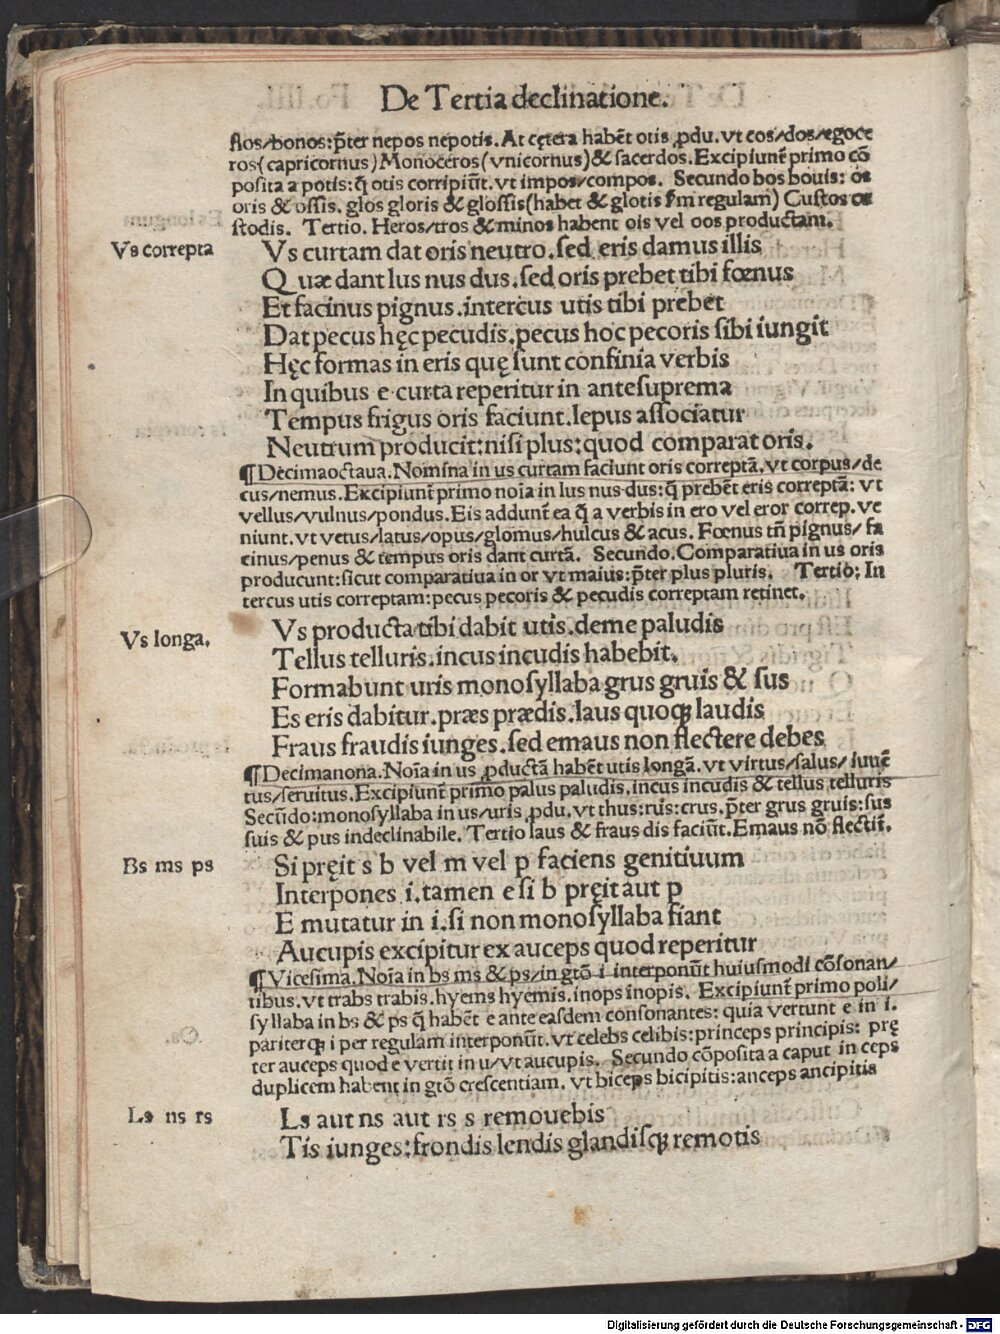 De Tertia declinatione.
flos/honos:p̄ter nepos nepotis. At cętera habēt otis ꝓdu. vt cos/dos/ęgoce
ros(capricornus) Monoceros(vnicornus) & sacerdos. Excipiunt̄ primo cō
posita a potis:q̄ otis corripiūt. vt impos/compos. Secundo bos bouis: os
oris & ossis. glos gloris & glossis(habet & glotis s̄m regulam) Custos cu
stodis. Tertio. Heros/tros & minos habent ois vel oos productam.
Vs correpta
Vs curtam dat oris neutro. sed eris damus illis
Quæ dant lus nus dus. sed oris prebet tibi fœnus
Et facinus pignus. intercus utis tibi prebet
Dat pecus hęc pecudis. pecus hoc pecoris sibi iungit
Hęc formas in eris quę sunt confinia verbis
In quibus e curta reperitur in antesuprema
Tempus frigus oris faciunt. lepus associatur
Neutrum producit: nisi plus: quod comparat oris.
¶ Decimaoctaua. Nomina in us curtam faciunt oris correptā. vt corpus/de
cus/nemus. Excipiunt̄ primo noīa in lus nus dus: q̄ prebēt eris correptā: vt
vellus/vulnus/pondus. Eis addunt̄ ea q̄ a verbis in ero vel eror correp. ve
niunt. vt vetus/latus/opus/glomus/hulcus & acus. Fœnus tn̄ pignus/ fa
cinus/penus & tempus oris dant curtā. Secundo. Comparatiua in us oris
producunt: sicut comparatiua in or vt maius: p̄ter plus pluris. Tertio: In
tercus utis correptam: pecus pecoris & pecudis correptam retinet.
Vs longa.
Vs producta tibi dabit utis. deme paludis
Tellus telluris. incus incudis habebit.
Formabunt uris monosyllaba grus gruis & sus
Es eris dabitur. præs prædis. laus quoqꝫ laudis
Fraus fraudis iunges. sed emaus non flectere debes
¶ Decimanona. Noīa in us ꝓductā habēt utis longā. vt virtus/salus/ iuuē
tus/seruitus. Excipiunt̄ primo palus paludis. incus incudis & tellus telluris
Secūdo: monosyllaba in us/uris ꝓdu. vt thus: rus: crus. p̄ter grus gruis: sus
suis & pus indeclinabile. Tertio laus & fraus dis faciūt. Emaus nō flectit̄.
Bs ms ps
Si pręit s b vel m vel p faciens genitiuum
Interpones i. tamen e si b pręit aut p
E mutatur in i. si non monosyllaba fiant
Aucupis excipitur ex auceps quod reperitur
¶ Vicesima. Noīa in bs ms & ps/in gtō i interponūt huiusmodi cōsonan/
tibus. vt trabs trabis. hyems hyemis. inops inopis. Excipiunt̄ primo poli/
syllaba in bs & ps q̄ habēt e ante easdem consonantes: quia vertunt e in i.
pariterqꝫ i per regulam interponūt. vt celebs celibis: princeps principis: prę
ter auceps quod e vertit in u/vt aucupis. Secundo cōposita a caput in ceps
duplicem habent in gtō crescentiam. vt biceps bicipitis: anceps ancipitis
Ls ns rs
Ls aut ns aut rs s remouebis
Tis iunges: frondis lendis glandisqꝫ remotis
Digitalisierung gefördert durch die Deutsche Forschungsgemeinschaft - DFG